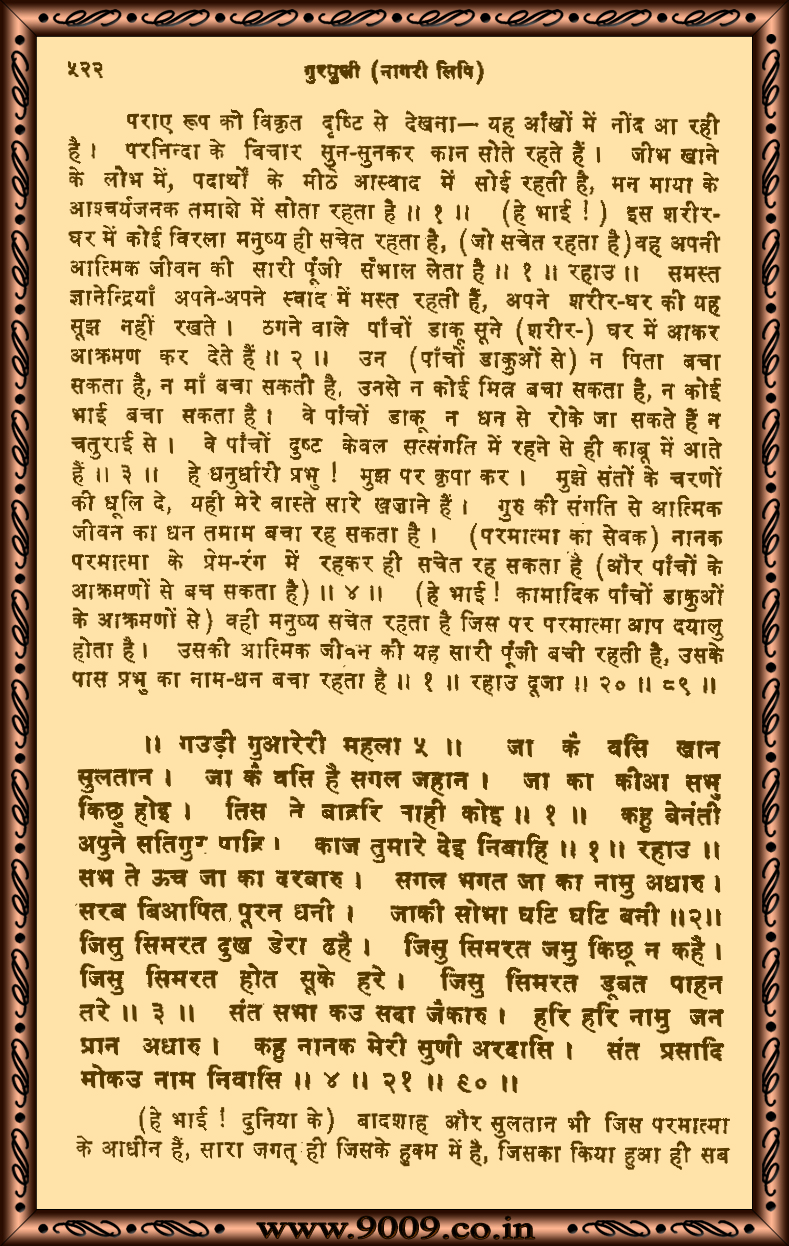 ५२२ गुरमुखी (नागरी लिपि)
पराए रूप को विकृत दृष्टि से देखना— यह आँखों में नींद आ रही
है। परनिन्दा के विचार सुन-सुनकर कान सोते रहते हैं। जीभ खाने
के लोभ में, पदार्थों के मीठे आस्वाद में सोई रहती है, मन माया के
आश्चर्यजनक तमाशे में सोता रहता है॥ १ ॥ (हे भाई ! ) इस शरीर-
घर में कोई विरला मनुष्य ही सचेत रहता है, (जो सचेत रहता है)वह अपनी
आत्मिक जीवन की सारी पूँजी सँभाल लेता है॥ १ ॥ रहाउ॥ समस्त
ज्ञानेन्द्रियाँ अपने-अपने स्वाद में मस्त रहती हैं, अपने शरीर-घर की यह
सूझ नहीं रखते। ठगने वाले पाँचों डाकू सूने (शरीर-) घर में आकर
आक्रमण कर देते हैं॥ २ ॥ उन (पाँचों डाकुओं से) न पिता बचा
सकता है, न माँ बचा सकती है, उनसे न कोई मित्र बचा सकता है, न कोई
भाई बचा सकता है। वे पाँचों डाकू न धन से रोके जा सकते हैं न
चतुराई से। वे पाँचों दुष्ट केवल सत्संगति में रहने से ही काबू में आते
हैं॥ ३ ॥ हे धनुर्धारी प्रभु ! मुझ पर कृपा कर। मुझे संतों के चरणों
की धूलि दे, यही मेरे वास्ते सारे खज़ाने हैं। गुरु की संगति से आत्मिक
जीवन का धन तमाम बचा रह सकता है। (परमात्मा का सेवक) नानक
परमात्मा के प्रेम-रंग में रहकर ही सचेत रह सकता है (और पाँचों के
आक्रमणों से बच सकता है)॥ ४ ॥ (हे भाई ! कामादिक पाँचों डाकुओं
के आक्रमणों से) वही मनुष्य सचेत रहता है जिस पर परमात्मा आप दयालु
होता है। उसकी आत्मिक जीवन की यह सारी पूँजी बची रहती है, उसके
पास प्रभु का नाम-धन बचा रहता है॥ १ ॥ रहाउ दूजा॥ २० ॥ ८९ ॥
॥ गउड़ी गुआरेरी महला ५ ॥ जा कै वसि खान
सुलतान। जा कै वसि है सगल जहान। जा का कीआ सभु
किछु होइ। तिस ते बाहरि नाही कोइ॥ १ ॥ कहु बेनंती
अपुने सतिगुर पाहि। काज तुमारे देइ निबाहि॥ १ ॥ रहाउ ॥
सभ ते ऊच जा का दरबारु। सगल भगत जा का नामु अधारु।
सरब बिआपित पूरन धनी। जाकी सोभा घटि घटि बनी॥२॥
जिसु सिमरत दुख डेरा ढहै। जिसु सिमरत जमु किछू न कहै।
जिसु सिमरत होत सूके हरे। जिसु सिमरत डूबत पाहन
तरे॥ ३ ॥ संत सभा कउ सदा जैकारु। हरि हरि नामु जन
प्रान अधारु। कहु नानक मेरी सुणी अरदासि। संत प्रसादि
मोकउ नाम निवासि॥ ४ ॥ २१ ॥ ९० ॥
(हे भाई ! दुनिया के) बादशाह और सुलतान भी जिस परमात्मा
के आधीन हैं, सारा जगत् ही जिसके हुक्म में है, जिसका किया हुआ ही सब
www.9009.co.in